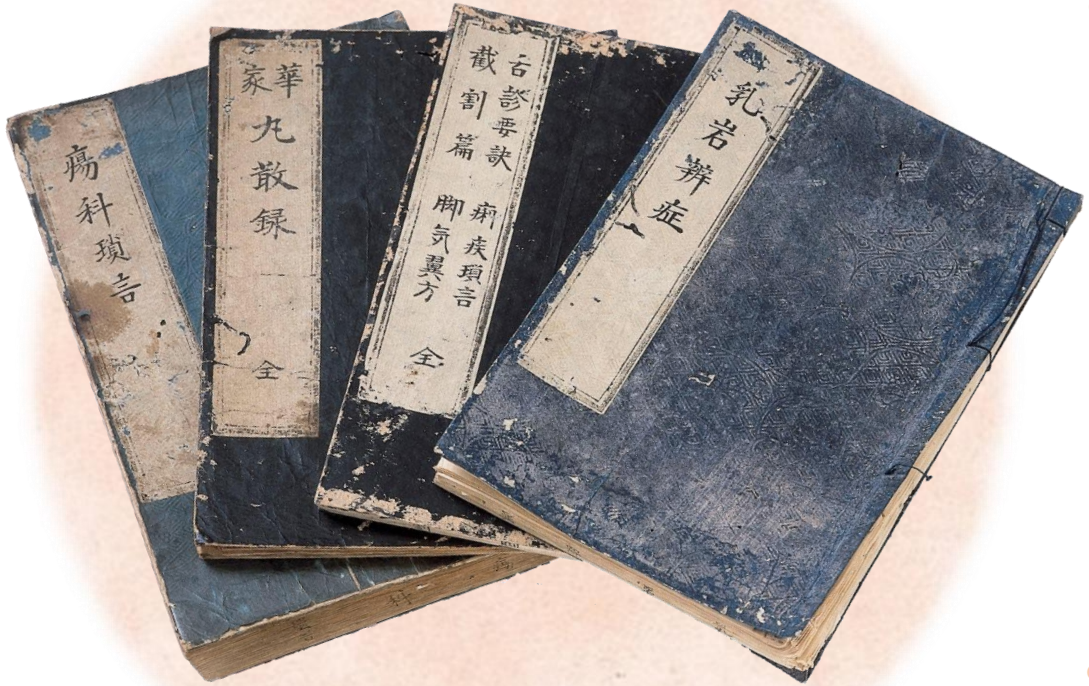 瘍科瑣言
華家
丸散録
全
舌診要訣
截割篇
痢疾瑣言
脚気翼方
全
乳岩辨症